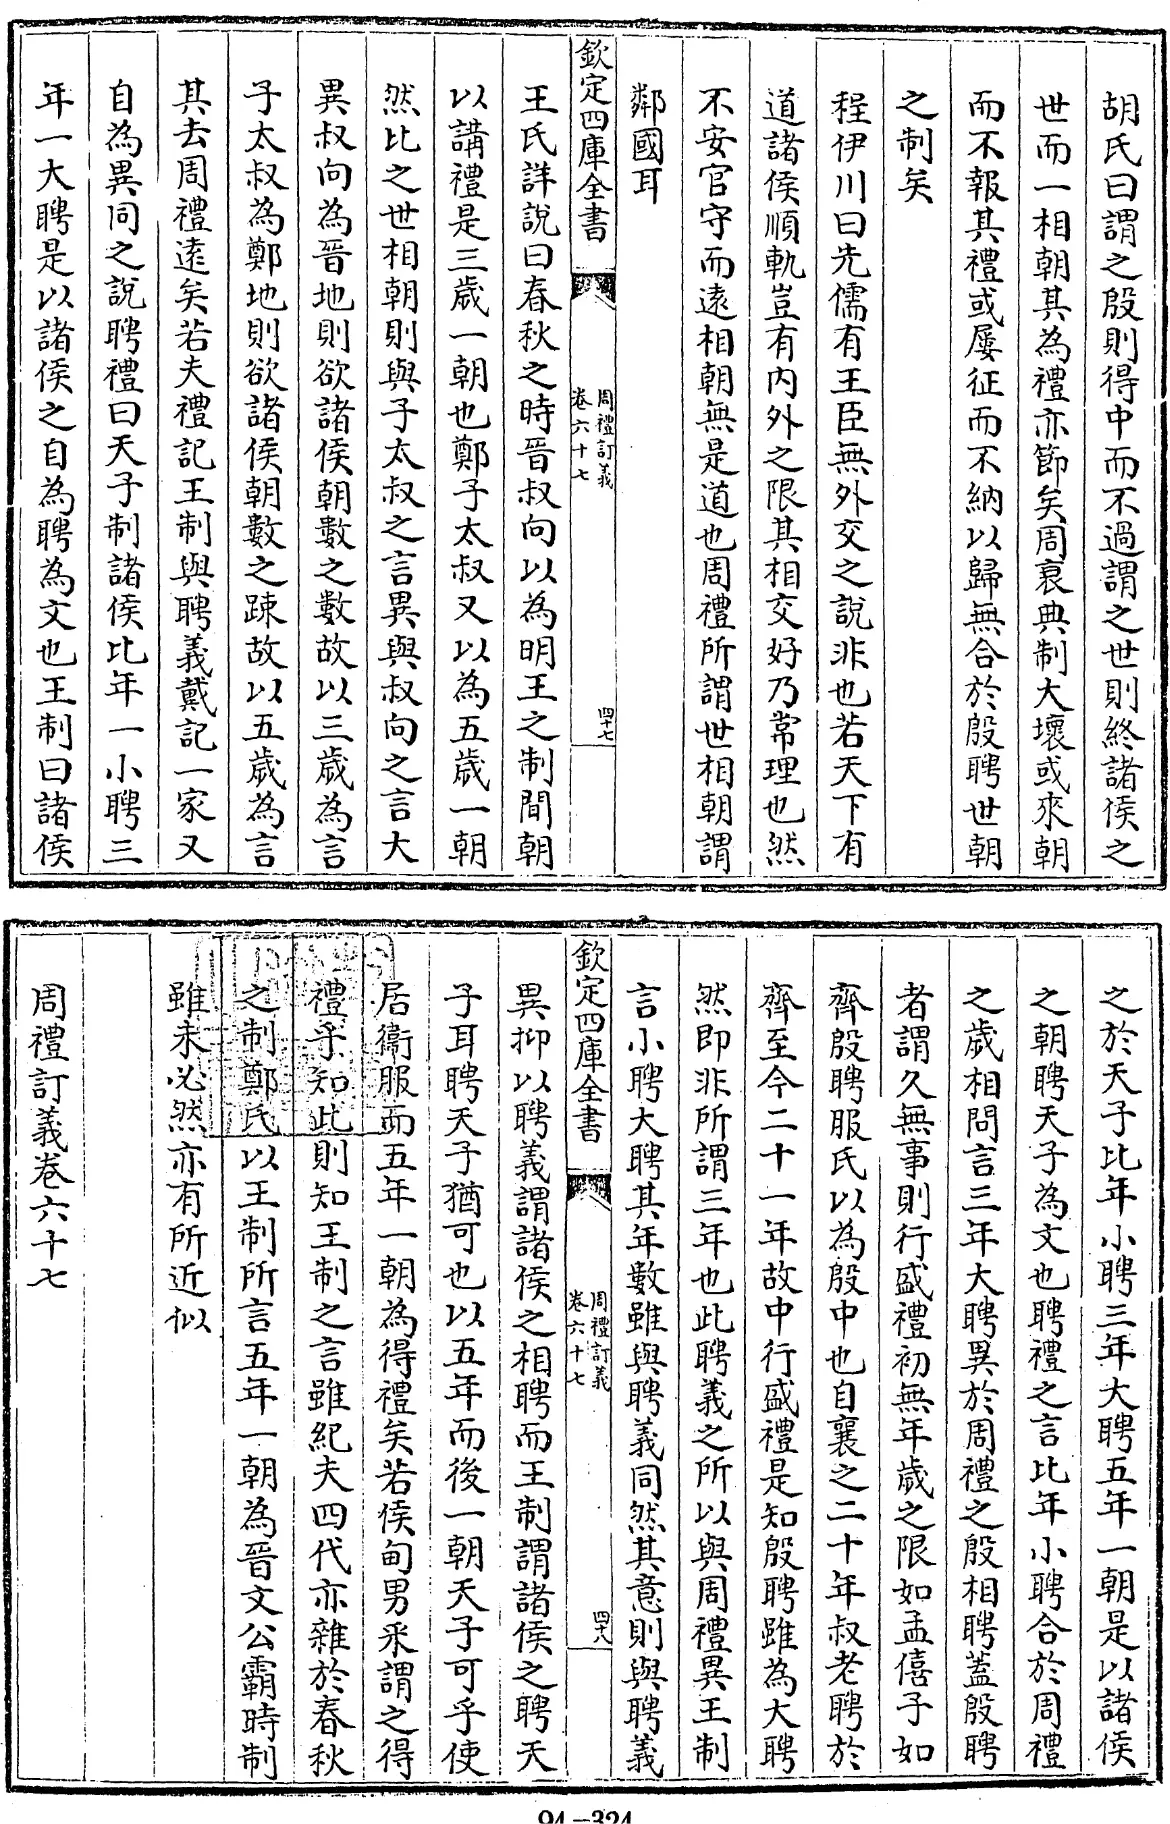 胡氏曰謂之殷則得中而不過謂之世則終諸侯之
世而一相朝其為禮亦節矣周衰典制大壞或來朝
而不報其禮或屢征而不納以歸無合於殷聘世朝
之制矣
程伊川曰先儒有王臣無外交之説非也若天下有
道諸侯順軌豈有内外之限其相交好乃常理也然
不安官守而遠相朝無是道也周禮所謂世相朝謂
鄰國耳
欽定四庫全書
周禮訂義
卷六十七
四十七
王氏詳説曰春秋之時晉叔向以為明王之制間朝
以講禮是三歲一朝也鄭子太叔又以為五歲一朝
然比之世相朝則與子太叔之言異與叔向之言大
異叔向為晉地則欲諸侯朝數之數故以三歲為言
子太叔為鄭地則欲諸侯朝數之疎故以五歲為言
其去周禮遠矣若夫禮記王制與聘義戴記一家又
自為異同之説聘禮曰天子制諸侯比年一小聘三
年一大聘是以諸侯之自為聘為文也王制曰諸侯
之於天子比年小聘三年大聘五年一朝是以諸侯
之朝聘天子為文也聘禮之言比年小聘合於周禮
之歲相問言三年大聘異於周禮之殷相聘蓋殷聘
者謂久無事則行盛禮初無年歲之限如孟僖子如
齊殷聘服氏以為殷中也自襄之二十年叔老聘於
齊至今二十一年故中行盛禮是知殷聘雖為大聘
然即非所謂三年也此聘義之所以與周禮異王制
言小聘大聘其年數雖與聘義同然其意則與聘義
欽定四庫全書
周禮訂義
卷六十七
四十八
異抑以聘義謂諸侯之相聘而王制謂諸侯之聘天
子耳聘天子猶可也以五年而後一朝天子可乎使
居衞服而五年一朝為得禮矣若侯甸男采謂之得
禮乎知此則知王制之言雖紀夫四代亦雜於春秋
之制鄭氏以王制所言五年一朝為晉文公霸時制
雖未必然亦有所近似
周禮訂義卷六十七
94-324